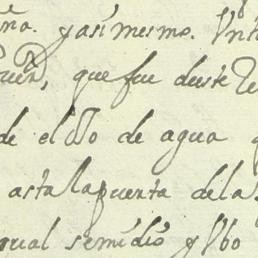 ña. y asi mesmo. Vn
que fue deste
de el o de agua
asta la puerta dela
qual se midio y Vbo